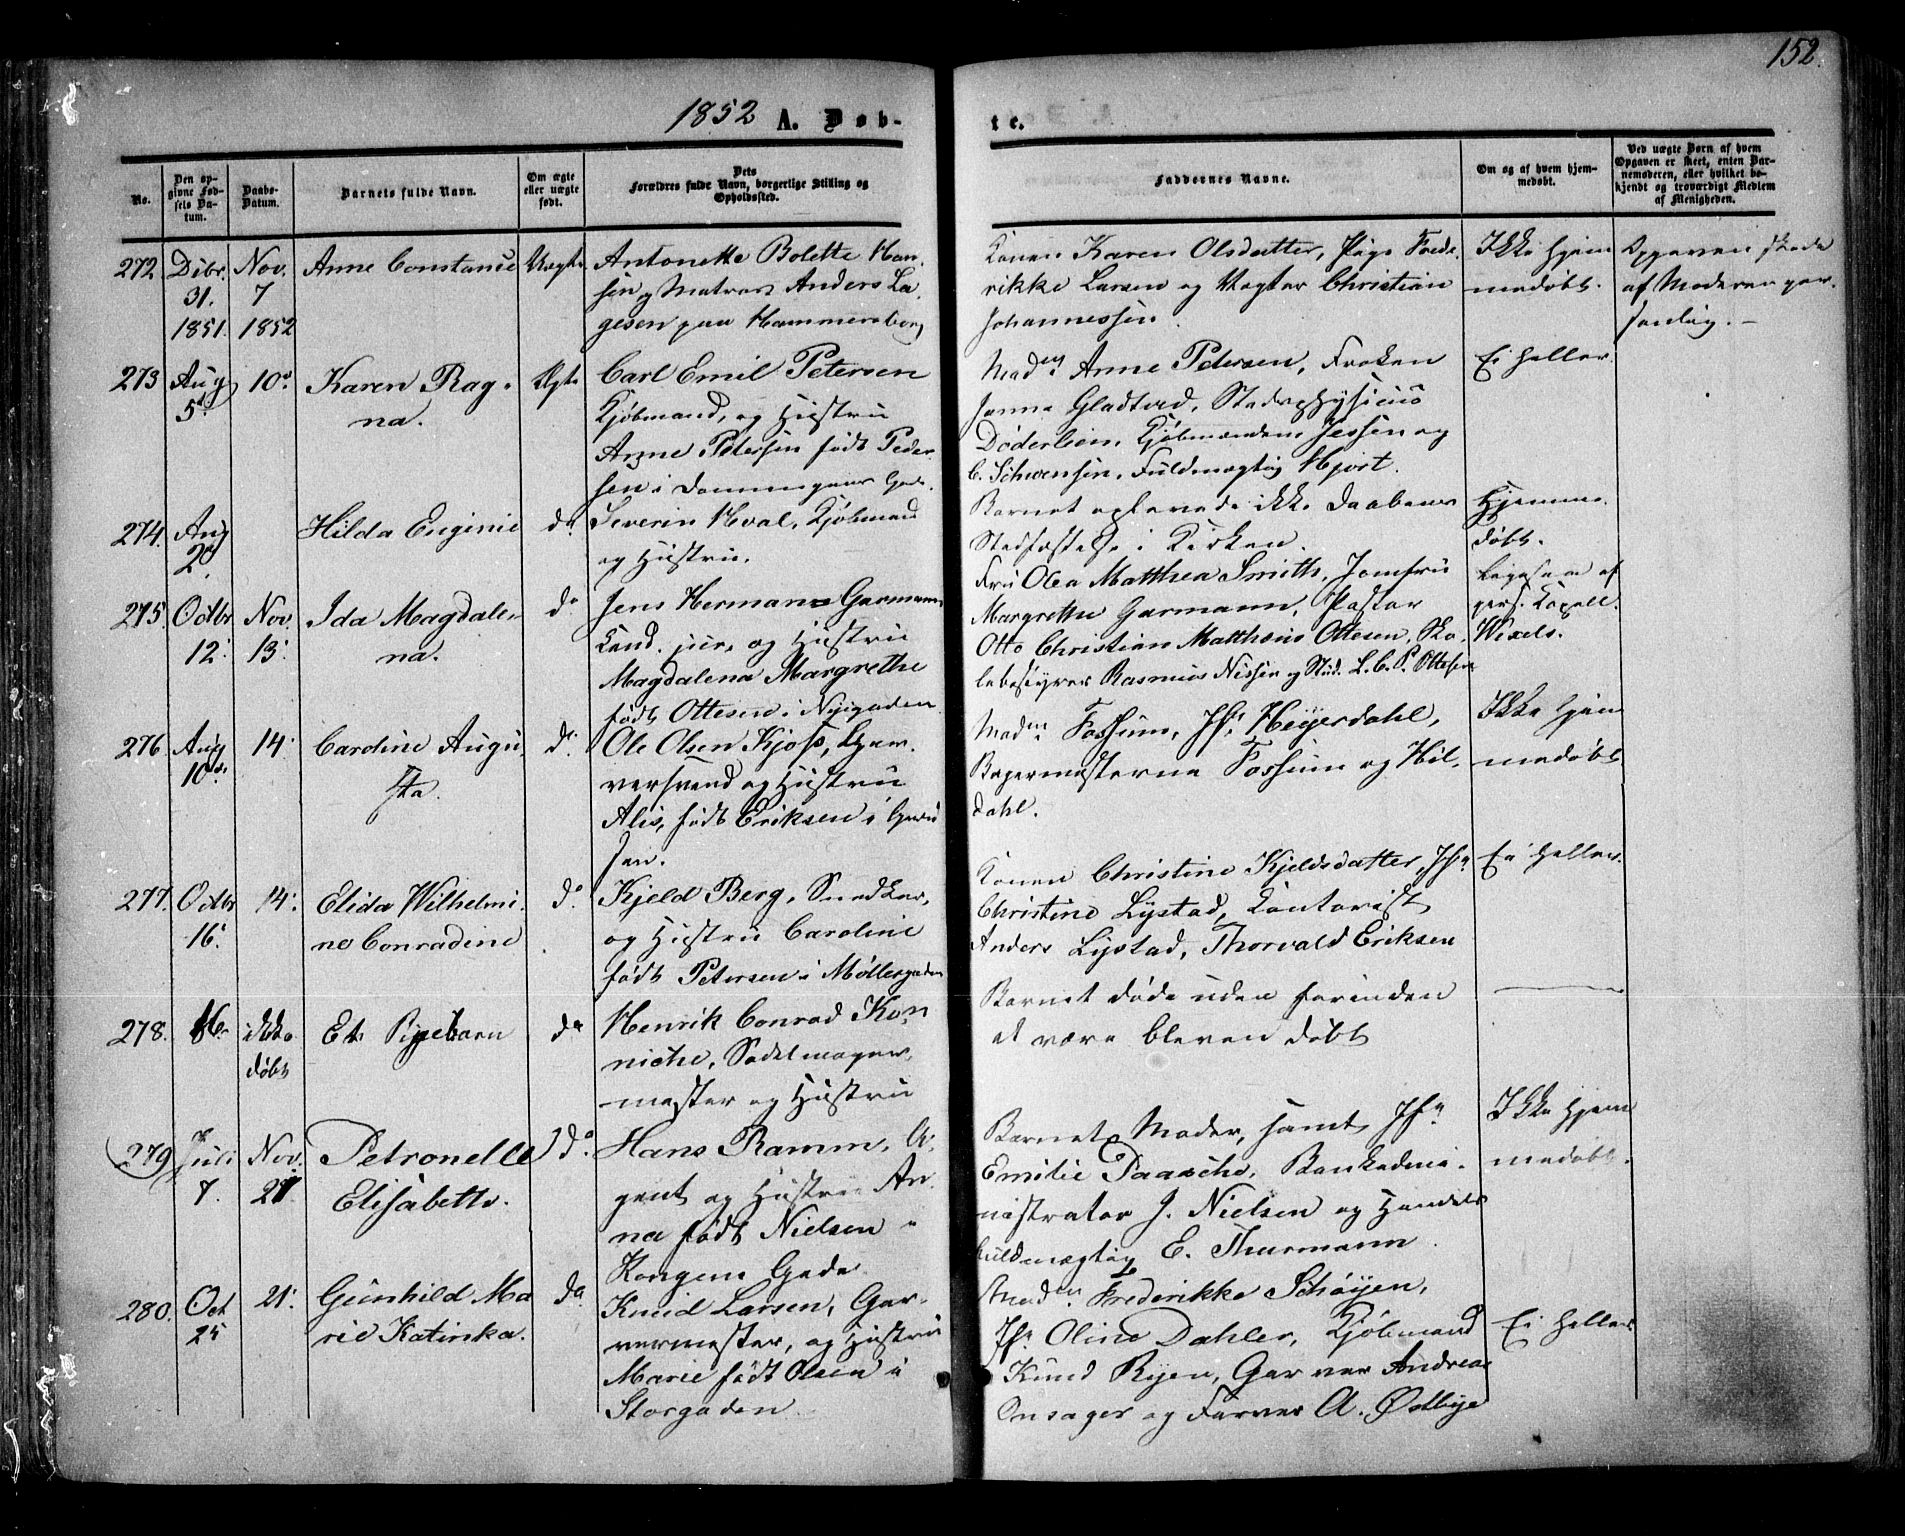 152.
1852 A. Døb-
te.
No.
Den op-
givne Fød-
sels Da-
tum.
Daabs-
Datum.
Barnets fulde Navn.
Om ægte
eller uægte
født.
Dets
Forældres fulde Navn, borgerlige Stilling og
Opholdssted.
Faddernes Navne.
Om og af hvem hjem-
medøbt.
Ved uægte Børn af hvem
Opgaven er skeet, enten Bar-
nemoderen, eller hvilket be-
kjendt og troværdigt Medlem
af Menigheden.
272
Dcbr.
31.
1851.
Nov.
7
1852
Anne Constance
Uægte
Antonette Bolette Han-
sen og Matros Anders La-
gesen paa Hammersborg
Konen Karen Olsdatter, Pige Frede-
rikke Larsen og Vægter Christian
Johannessen.
Ikke hjem
medøbt.
Opgaven skede
af Moderen per-
sonlig. –
273
Aug
5.
10.
Karen Rag-
na.
Ægte
Carl Emil Petersen
Kjøbmand, og Hustru
Anne Petersen født Peder-
sen i
Mad. Anne Petersen, Frøken
Janna Gladtved, Stadsphysicus
Døderlein, Kjøbmændene Jessen og
C. Schwensen, Fuldmægtig Hjort.
Ei heller.
274.
Aug
20.
Hilda Euginie
do.
Severin Hval, Kjøbmand
og Hustru.
Barnet oplevede ikke Daabens
Stadfæstelse i Kirken.
Hjemme-
døbt.
275.
Octbr
12.
Nov.
13.
Ida Magdale-
na.
do
Jens Herman Garmann
Cand. jur., og Hustru
Magdalena Margrethe
født Ottesen i Nygaden
Fru Olea Matthea Smith, Jomfru
Margrethe Garmann, Pastor
Otto Christian Matthæus Ottesen, Sko-
lebestyrer Rasmus Nissen og Stud. L. C. P. Ottesen
Ligesaa af
pers. Kapell.
Wexels.
276.
Aug
10.
14.
Caroline Augu-
sta.
do.
Ole Olsen Kjos, Gar-
versvend og Hustru
Alis, født Eriksen i Grænd
sen.
Madm. Fossum, Jfr. Heyerdahl,
Bagermesterne Fossum og Hil-
dahl.
Ikke hjem
medøbt
277.
Octbr
16.
14.
Elida Wilhelmi-
ne Conradine
do.
Kjeld Berg, Snedker,
og Hustru Caroline
født Petersen i Møllergaden
Konen Christine Kjeldsdatter, Jfr
Christine Lystad, Contorist
Anders Lystad, Thorvald Eriksen
Ei heller.
278.
ikke
døbt
Et Pigebarn
do
Henrik Conrad Kön
niche, Sadelmager-
mester og Hustru
Barnet døde uden forinden
at være bleven døbt
279
Juli
7.
Nov.
21
Petronelle
Elisabette.
do.
Hans Ramm, A-
gent og Hustru An-
na født Nielsen i
Kongens Gade
Barnets Moder, samt Jfr
Emilie Paasche, Bankadmi-
nistrator J. Nielsen og Handels
fuldmægtig E. Thurmann.
Ikke hjem
medøbt.
280.
Oct
25
21.
Gunhild Ma
rie Katinka.
do
Knud Larsen, Gar-
vermester, og Hustru
Marie født Olsen i
Storgaden.
Madm. Frederikke Schøyen,
Jfr. Oline Dahler, Kjøbmand
Knud Ryen, Garver Andreas
Onsager og Farver A. Østbye
Ei heller